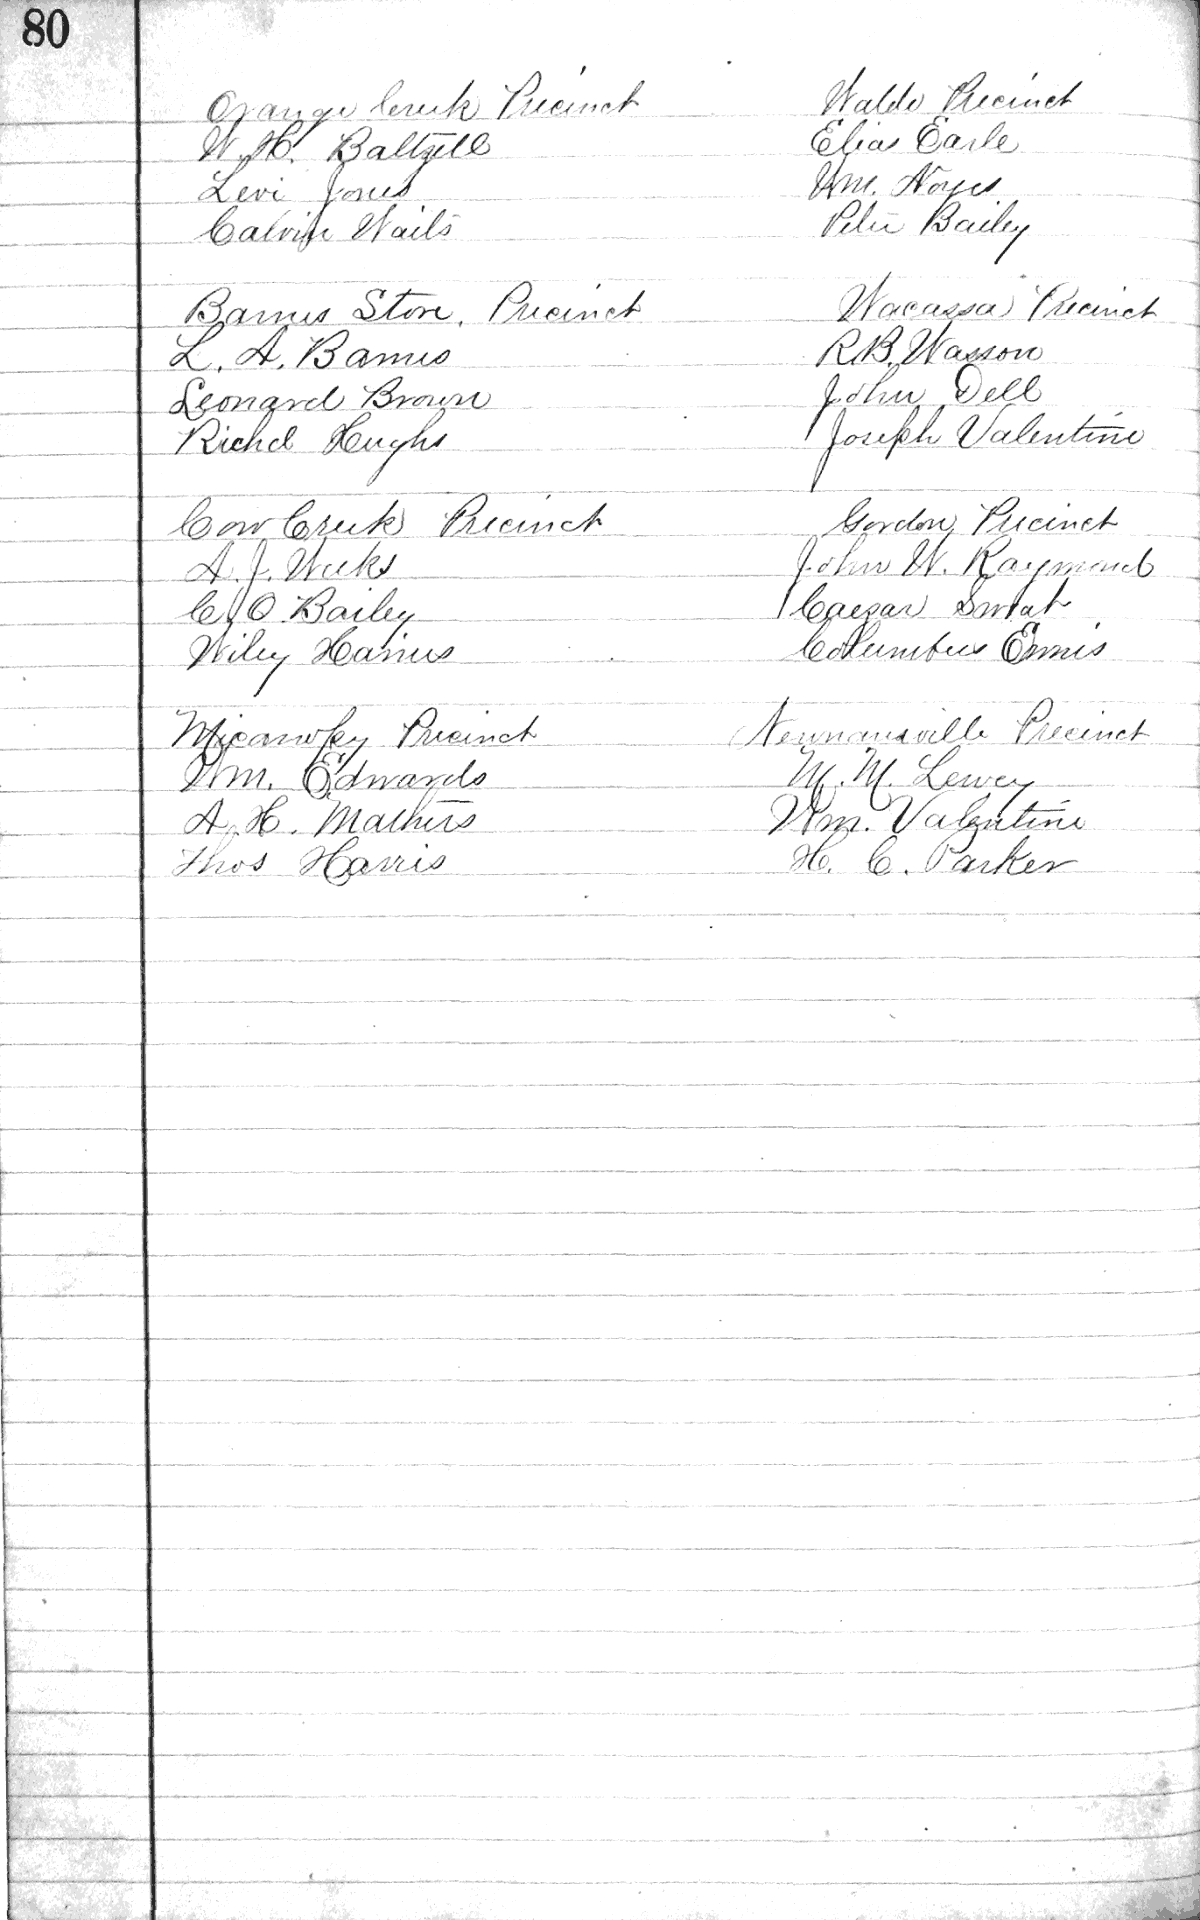 80
Orange Creek Precinct
W. H. Baltzell
Levi Jones
Calvin Waits
Waldo Precinct
Elias Earle
Wm. Noyes
Peter Bailey
Barnes Store, Precinct
L. A. Barnes
Leonard Brown
Richd Hughs
Wacassa Precinct
R.B. Wasson
John Dell
Joseph Valentine
Cow Creek Precinct
A. J. Weeks
C. O. Bailey
Wiley Haines
Gordon Precinct
John W. Raymond
Caesar Sweat
Columbus Ennis
Micanopy Precinct
Wm. Edwards
A. H. Mathers
Thos Harris
Newnansville Precinct
M. M. Lewey
Wm. Valentine
H. C. Parker